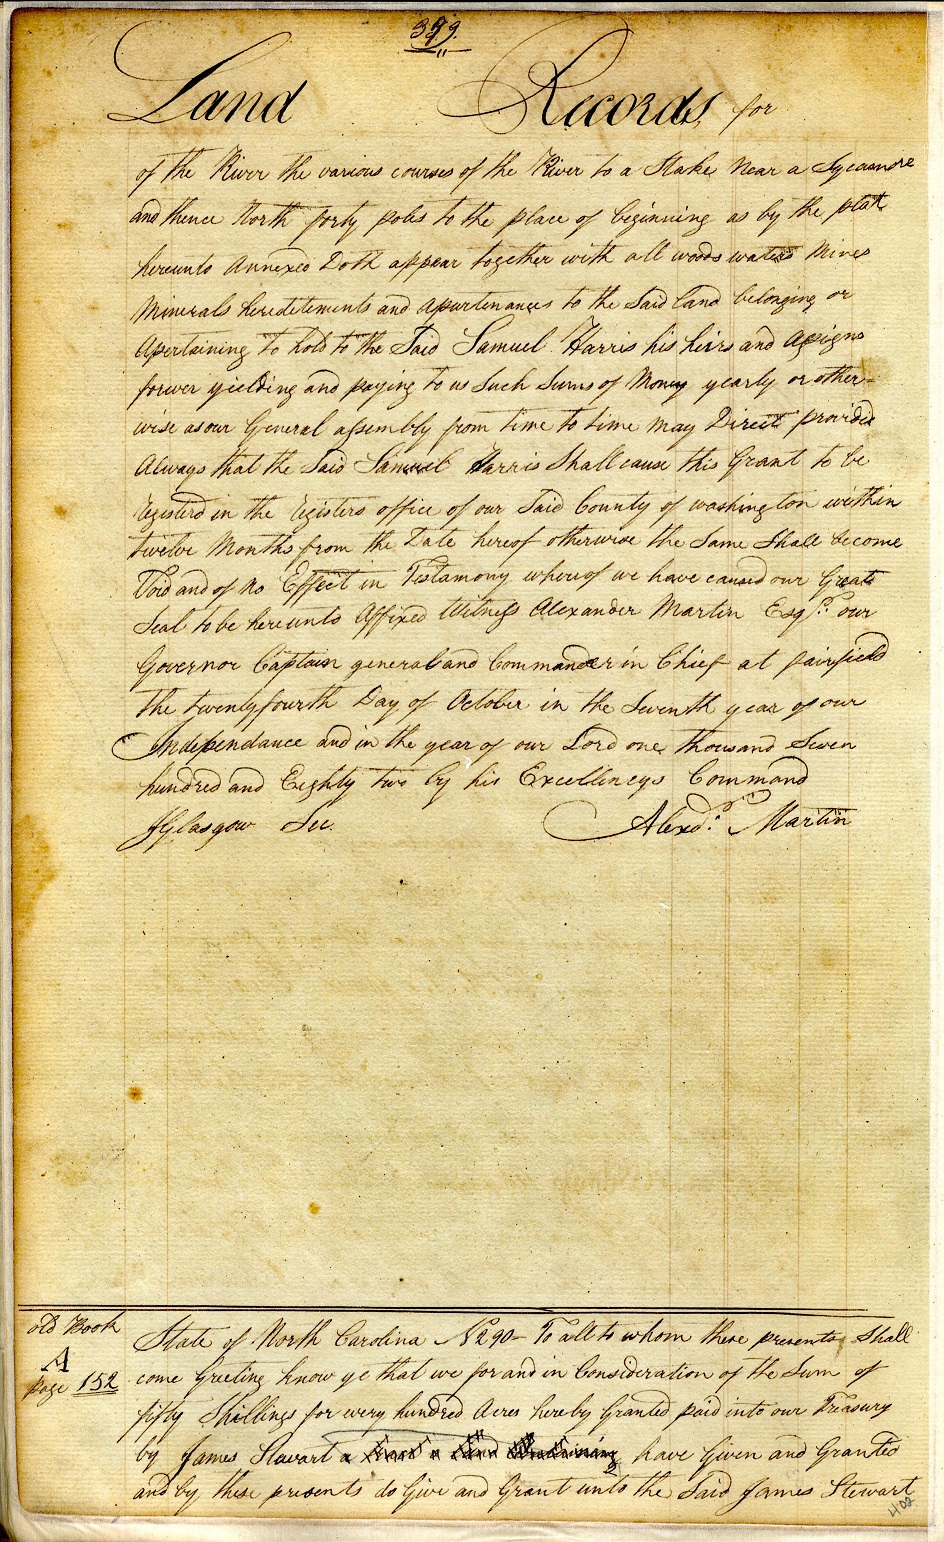 399.
Land Records for
of the River the various courses of the River to a Stake Near a Sycamore
and thence North forty poles to the place of beginning as by the plat
hereunto Annexed Doth appear together with all woods waters Mines
Minerals hereditements and Apurtenances to the Said land belonging or
Apertaining to hold to the Said Samuel Harris his heirs and Assigns
forever yielding and paying to us Such Sums of Money yearly or other=
wise as our General assembly from time to time may Direct provided
Always that the Said Samuel Harris Shall cause this Grant to be
registerd in the registers office of our Said County of washington within
twelve Months from the Date hereof otherwise the Same Shall become
Void and of no Effect in Testamony whereof we have caused our Great
Seal to be hereunto Affixed Witness Alexander Martin Esqr. our
Governor Captain general and Commander in Chief at fairfield
the twenty fourth Day of October in the Seventh year of our
Independance and in the year of our Lord one thousand Seven
hundred and Eighty two by his Excellencys Command
JGlasgow Sec. Alexdr. Martin
old Book
A
page 152
State of North Carolina No 290- To all to whom these presents Shall
come Greeting know ye that we for and in Consideration of the Sum of
fifty Shillings for every hundred Acres hereby Granted paid into our Treasury
by James Stewart have Given and Granted
and by these presents do Give and Grant unto the Said James Stewart
402